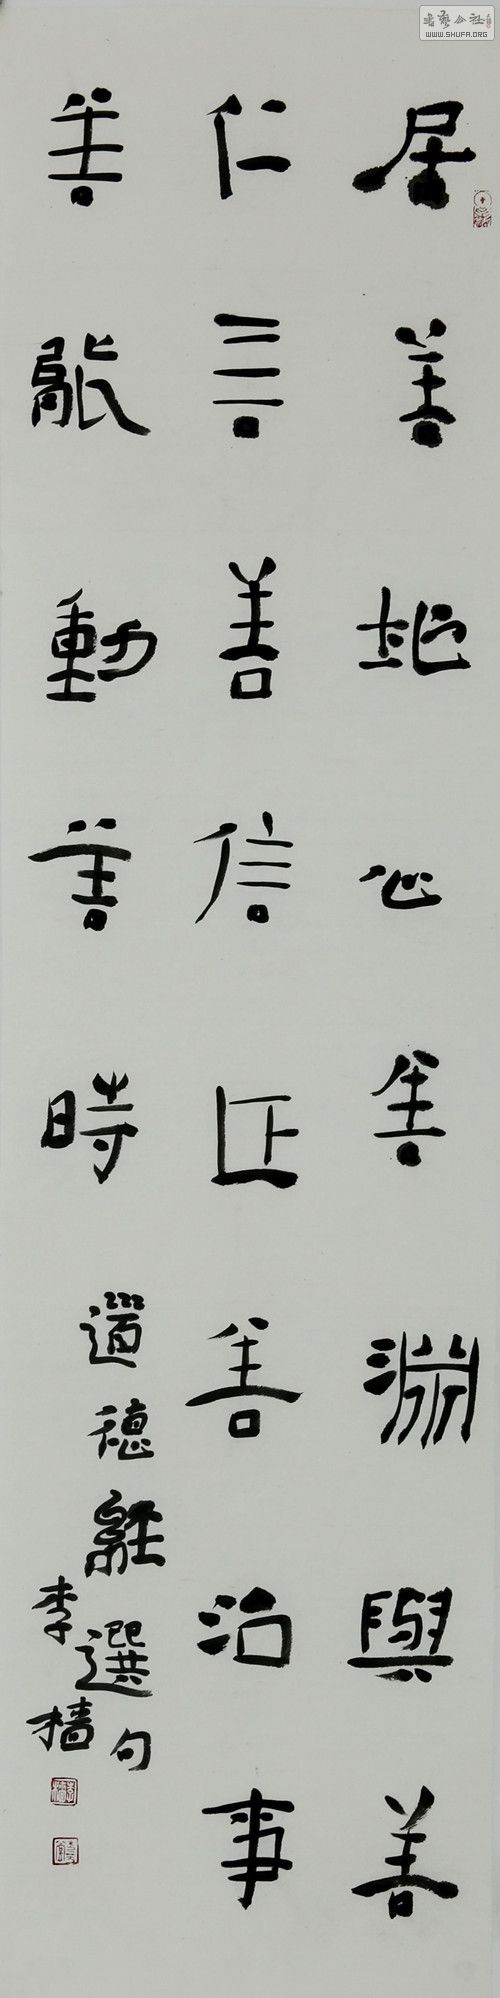 居善地心善淵與善
仁言善信正善治事
善能動善時
道德經選句
李墻
WWW.SHUFA.ORG